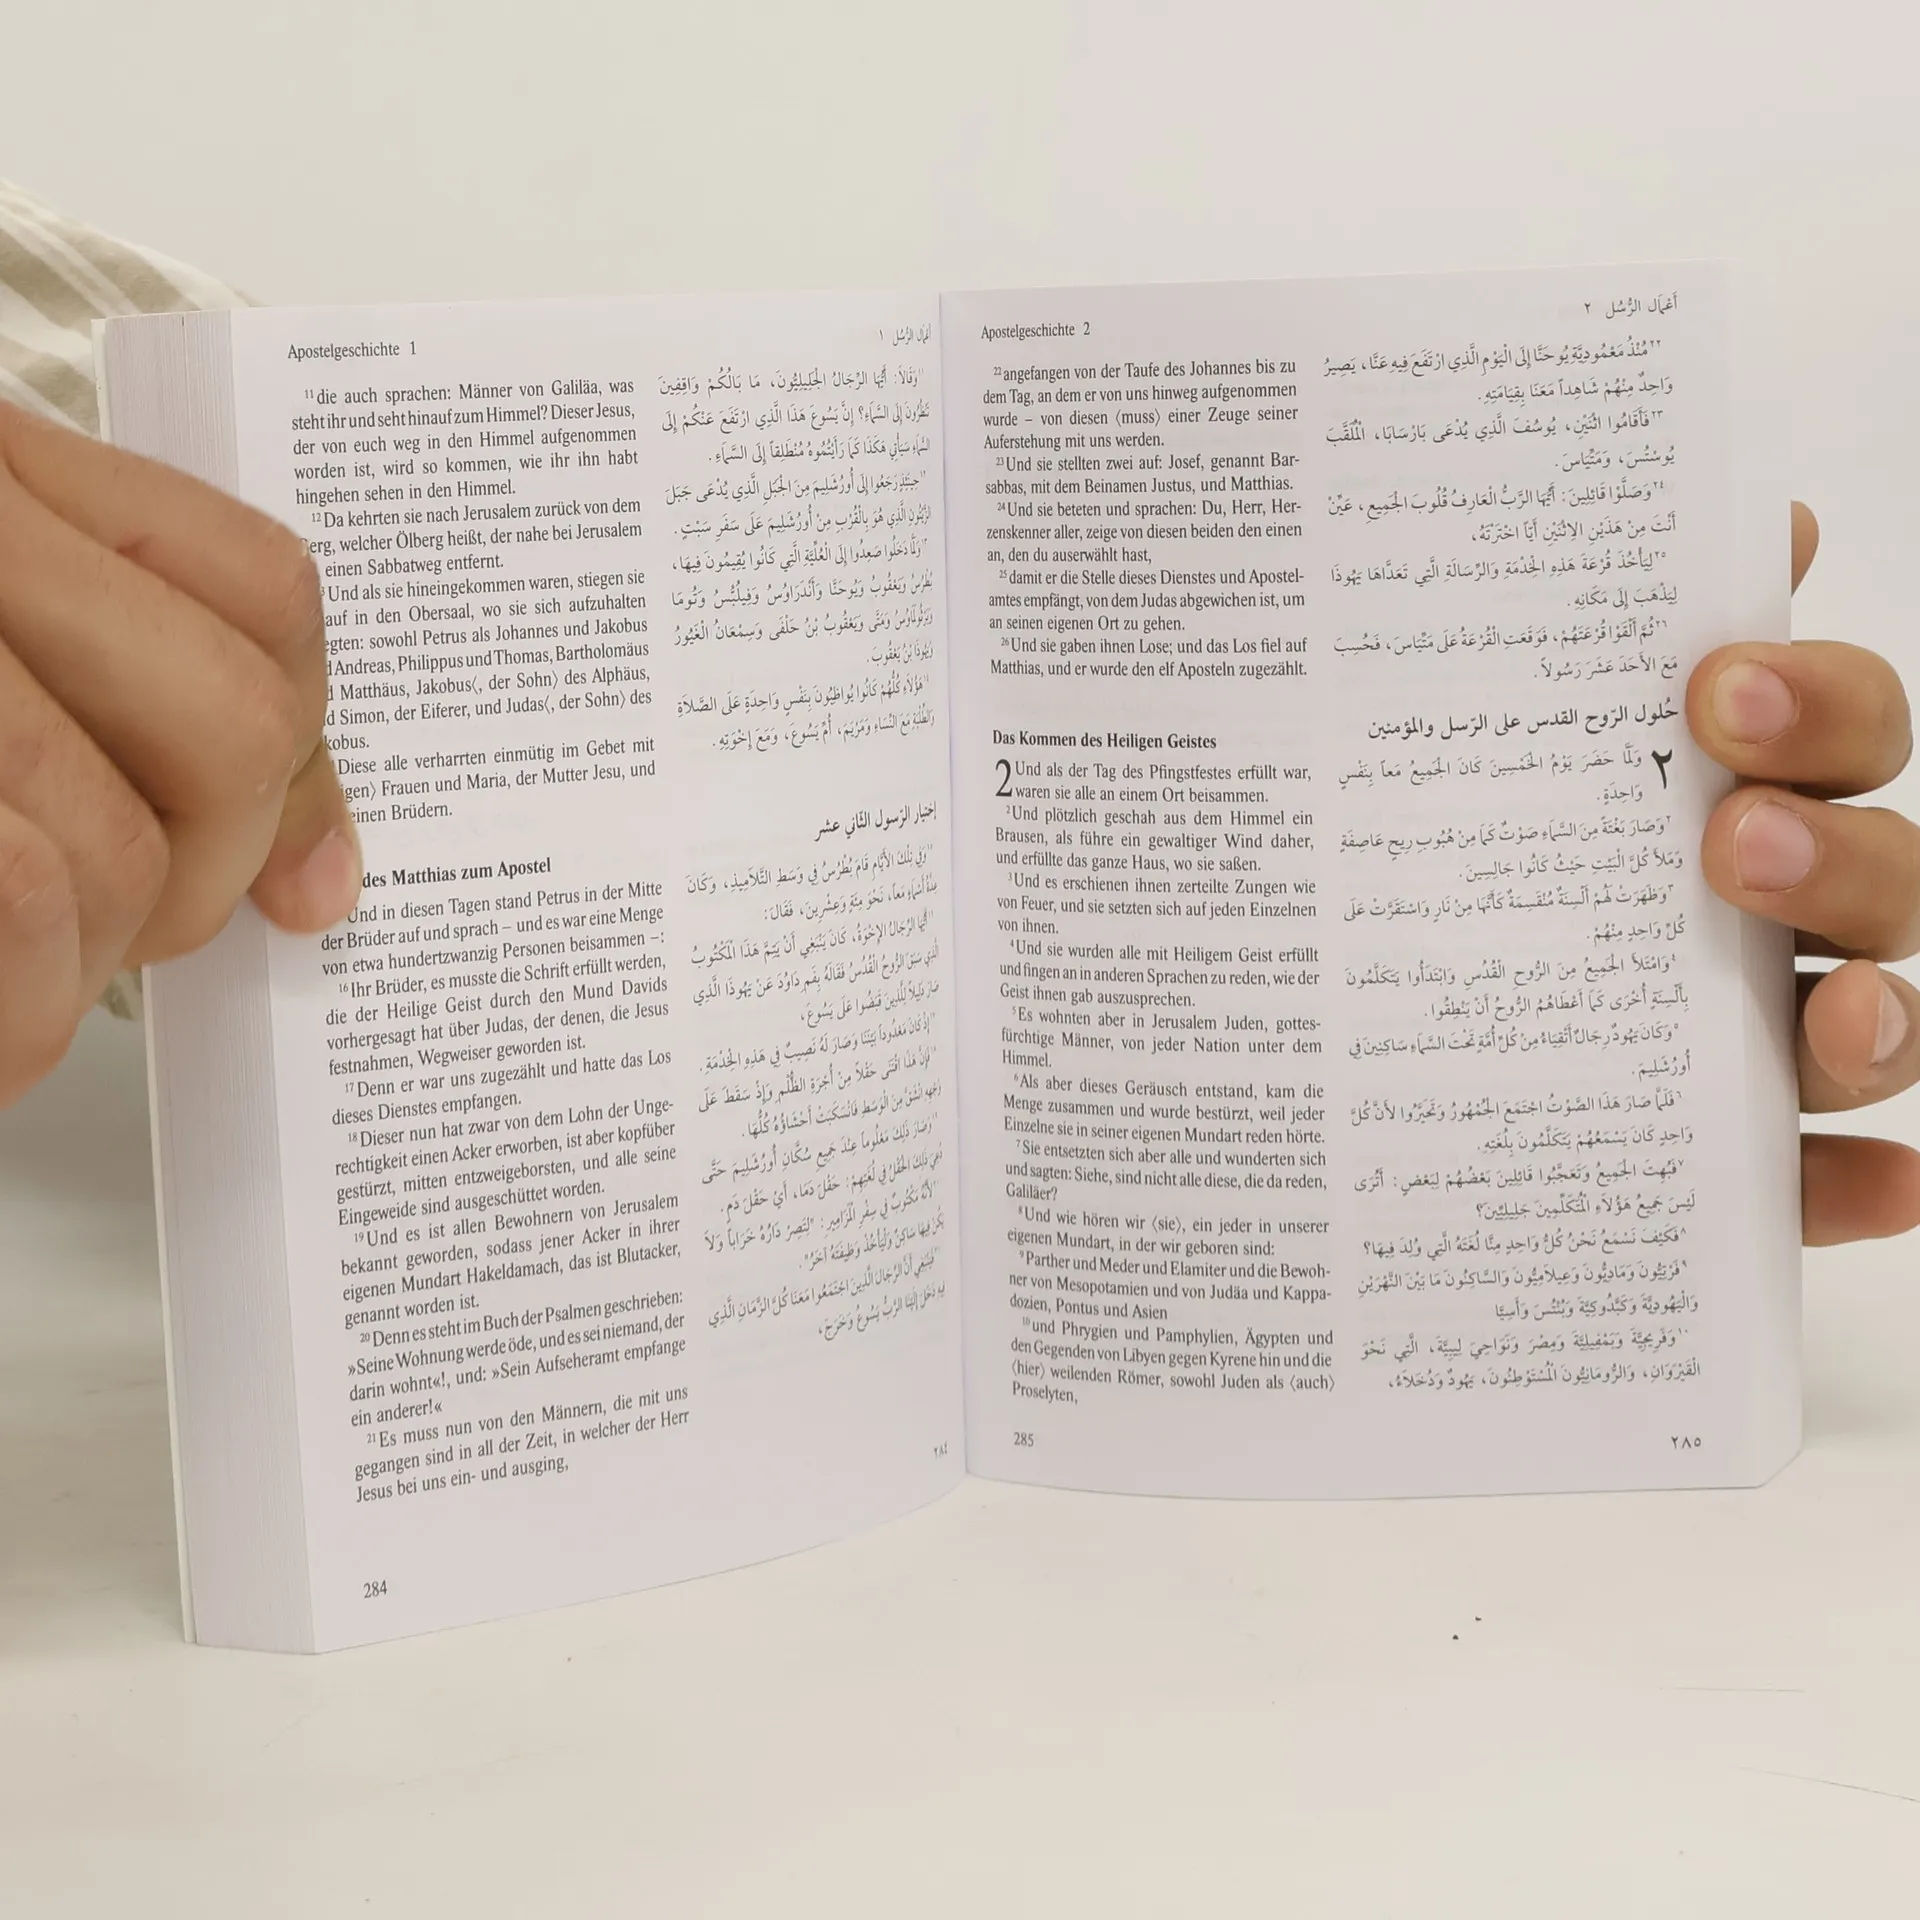 Apostelgeschichte 1
11 die auch sprachen: Männer von Galiläa, was
steht ihr und seht hinauf zum Himmel? Dieser Jesus,
der von euch weg in den Himmel aufgenommen
worden ist, wird so kommen, wie ihr ihn habt
hingehen sehen in den Himmel.
12 Da kehrten sie nach Jerusalem zurück von dem
erg, welcher Ölberg heißt, der nahe bei Jerusalem
einen Sabbatweg entfernt.
Und als sie hineingekommen waren, stiegen sie
auf in den Obersaal, wo sie sich aufzuhalten
egten: sowohl Petrus als Johannes und Jakobus
d Andreas, Philippus und Thomas, Bartholomäus
d Matthäus, Jakobus⟨, der Sohn⟩ des Alphäus,
d Simon, der Eiferer, und Judas⟨, der Sohn⟩ des
kobus.
Diese alle verharrten einmütig im Gebet mit
igen⟩ Frauen und Maria, der Mutter Jesu, und
einen Brüdern.
des Matthias zum Apostel
Und in diesen Tagen stand Petrus in der Mitte
der Brüder auf und sprach – und es war eine Menge
von etwa hundertzwanzig Personen beisammen –:
16 Ihr Brüder, es musste die Schrift erfüllt werden,
die der Heilige Geist durch den Mund Davids
vorhergesagt hat über Judas, der denen, die Jesus
festnahmen, Wegweiser geworden ist.
17 Denn er war uns zugezählt und hatte das Los
dieses Dienstes empfangen.
18 Dieser nun hat zwar von dem Lohn der Unge-
rechtigkeit einen Acker erworben, ist aber kopfüber
gestürzt, mitten entzweigeborsten, und alle seine
Eingeweide sind ausgeschüttet worden.
19 Und es ist allen Bewohnern von Jerusalem
bekannt geworden, sodass jener Acker in ihrer
eigenen Mundart Hakeldamach, das ist Blutacker,
genannt worden ist.
20 Denn es steht im Buch der Psalmen geschrieben:
»Seine Wohnung werde öde, und es sei niemand, der
darin wohnt«!, und: »Sein Aufseheramt empfange
ein anderer!«
21 Es muss nun von den Männern, die mit uns
gegangen sind in all der Zeit, in welcher der Herr
Jesus bei uns ein- und ausging,
284
أَعْمَال الرُّسُل ١
١١وَقَالاَ: أَيُّهَا الرِّجَالُ الْجَلِيلِيُّونَ، مَا بَالُكُمْ وَاقِفِينَ
تَنْظُرُونَ إِلَى السَّمَاءِ؟ إِنَّ يَسُوعَ هَذَا الَّذِي ارْتَفَعَ عَنْكُمْ إِلَى
السَّمَاءِ سَيَأْتِي هَكَذَا كَمَا رَأَيْتُمُوهُ مُنْطَلِقاً إِلَى السَّمَاءِ.
١٢حِينَئِذٍ رَجَعُوا إِلَى أُورُشَلِيمَ مِنَ الْجَبَلِ الَّذِي يُدْعَى جَبَلَ
الزَّيْتُونِ الَّذِي هُوَ بِالْقُرْبِ مِنْ أُورُشَلِيمَ عَلَى سَفَرِ سَبْتٍ.
١٣وَلَمَّا دَخَلُوا صَعِدُوا إِلَى الْعُلِّيَّةِ الَّتِي كَانُوا يُقِيمُونَ فِيهَا،
بُطْرُسُ وَيَعْقُوبُ وَيُوحَنَّا وَأَنْدَرَاوُسُ وَفِيلُبُّسُ وَتُومَا
وَبَرْثُولَمَاوُسُ وَمَتَّى وَيَعْقُوبُ بْنُ حَلْفَى وَسِمْعَانُ الْغَيُورُ
وَيَهُوذَا بْنُ يَعْقُوبَ.
١٤هَؤُلاَءِ كُلُّهُمْ كَانُوا يُواظِبُونَ بِنَفْسٍ وَاحِدَةٍ عَلَى الصَّلاَةِ
وَالطِّلْبَةِ مَعَ النِّسَاءِ وَمَرْيَمَ، أُمِّ يَسُوعَ، وَمَعَ إِخْوَتِهِ.
إختيار الرّسول الثّاني عشر
١٥وَفِي تِلْكَ الأَيَّامِ قَامَ بُطْرُسُ فِي وَسَطِ التَّلاَمِيذِ، وَكَانَ
عِدَّةُ أَسْمَاءٍ مَعاً، نَحْوَ مِئَةٍ وَعِشْرِينَ، فَقَالَ:
١٦أَيُّهَا الرِّجَالُ الإِخْوَةُ، كَانَ يَنْبَغِي أَنْ يَتِمَّ هَذَا الْمَكْتُوبُ
الَّذِي سَبَقَ الرُّوحُ الْقُدُسُ فَقَالَهُ بِفَمِ دَاوُدَ عَنْ يَهُوذَا الَّذِي
صَارَ دَلِيلاً لِلَّذِينَ قَبَضُوا عَلَى يَسُوعَ،
١٧إِذْ كَانَ مَعْدُوداً بَيْنَنَا وَصَارَ لَهُ نَصِيبٌ فِي هَذِهِ الْخِدْمَةِ.
١٨فَإِنَّ هَذَا اقْتَنَى حَقْلاً مِنْ أُجْرَةِ الظُّلْمِ وَإِذْ سَقَطَ عَلَى
وَجْهِهِ انْشَقَّ مِنَ الْوَسَطِ فَانْسَكَبَتْ أَحْشَاؤُهُ كُلُّهَا.
١٩وَصَارَ ذَلِكَ مَعْلُوماً عِنْدَ جَمِيعِ سُكَّانِ أُورُشَلِيمَ حَتَّى
دُعِيَ ذَلِكَ الْحَقْلُ فِي لُغَتِهِمْ: حَقْلَ دَمَا، أَيْ حَقْلَ دَمٍ.
٢٠لأَنَّهُ مَكْتُوبٌ فِي سِفْرِ الْمَزَامِيرِ: "لِتَصِرْ دَارُهُ خَرَاباً وَلاَ
يَكُنْ فِيهَا سَاكِنٌ وَلْيَأْخُذْ وَظِيفَتَهُ آخَرُ".
٢١فَيَنْبَغِي أَنَّ الرِّجَالَ الَّذِينَ اجْتَمَعُوا مَعَنَا كُلَّ الزَّمَانِ الَّذِي
فِيهِ دَخَلَ إِلَيْنَا الرَّبُّ يَسُوعُ وَخَرَجَ،
٢٨٤
Apostelgeschichte 2
22 angefangen von der Taufe des Johannes bis zu
dem Tag, an dem er von uns hinweg aufgenommen
wurde – von diesen ⟨muss⟩ einer Zeuge seiner
Auferstehung mit uns werden.
23 Und sie stellten zwei auf: Josef, genannt Bar-
sabbas, mit dem Beinamen Justus, und Matthias.
24 Und sie beteten und sprachen: Du, Herr, Her-
zenskenner aller, zeige von diesen beiden den einen
an, den du auserwählt hast,
25 damit er die Stelle dieses Dienstes und Apostel-
amtes empfängt, von dem Judas abgewichen ist, um
an seinen eigenen Ort zu gehen.
26 Und sie gaben ihnen Lose; und das Los fiel auf
Matthias, und er wurde den elf Aposteln zugezählt.
Das Kommen des Heiligen Geistes
2 Und als der Tag des Pfingstfestes erfüllt war,
waren sie alle an einem Ort beisammen.
2 Und plötzlich geschah aus dem Himmel ein
Brausen, als führe ein gewaltiger Wind daher,
und erfüllte das ganze Haus, wo sie saßen.
3 Und es erschienen ihnen zerteilte Zungen wie
von Feuer, und sie setzten sich auf jeden Einzelnen
von ihnen.
4 Und sie wurden alle mit Heiligem Geist erfüllt
und fingen an in anderen Sprachen zu reden, wie der
Geist ihnen gab auszusprechen.
5 Es wohnten aber in Jerusalem Juden, gottes-
fürchtige Männer, von jeder Nation unter dem
Himmel.
6 Als aber dieses Geräusch entstand, kam die
Menge zusammen und wurde bestürzt, weil jeder
Einzelne sie in seiner eigenen Mundart reden hörte.
7 Sie entsetzten sich aber alle und wunderten sich
und sagten: Siehe, sind nicht alle diese, die da reden,
Galiläer?
8 Und wie hören wir ⟨sie⟩, ein jeder in unserer
eigenen Mundart, in der wir geboren sind:
9 Parther und Meder und Elamiter und die Bewoh-
ner von Mesopotamien und von Judäa und Kappa-
dozien, Pontus und Asien
10 und Phrygien und Pamphylien, Ägypten und
den Gegenden von Libyen gegen Kyrene hin und die
⟨hier⟩ weilenden Römer, sowohl Juden als ⟨auch⟩
Proselyten,
285
أَعْمَال الرُّسُل ٢
٢٢مُنْذُ مَعْمُودِيَّةِ يُوحَنَّا إِلَى الْيَوْمِ الَّذِي ارْتَفَعَ فِيهِ عَنَّا، يَصِيرُ
وَاحِدٌ مِنْهُمْ شَاهِداً مَعَنَا بِقِيَامَتِهِ.
٢٣فَأَقَامُوا اثْنَيْنِ، يُوسُفَ الَّذِي يُدْعَى بَارْسَابَا، الْمُلَقَّبَ
يُوسْتُسَ، وَمَتِّيَاسَ.
٢٤وَصَلَّوْا قَائِلِينَ: أَيُّهَا الرَّبُّ الْعَارِفُ قُلُوبَ الْجَمِيعِ، عَيِّنْ
أَنْتَ مِنْ هَذَيْنِ الاِثْنَيْنِ أَيّاً اخْتَرْتَهُ،
٢٥لِيَأْخُذَ قُرْعَةَ هَذِهِ الْخِدْمَةِ وَالرِّسَالَةِ الَّتِي تَعَدَّاهَا يَهُوذَا
لِيَذْهَبَ إِلَى مَكَانِهِ.
٢٦ثُمَّ أَلْقَوْا قُرْعَتَهُمْ، فَوَقَعَتِ الْقُرْعَةُ عَلَى مَتِّيَاسَ، فَحُسِبَ
مَعَ الأَحَدَ عَشَرَ رَسُولاً.
حُلول الرّوح القدس على الرّسل والمؤمنين
٢ وَلَمَّا حَضَرَ يَوْمُ الْخَمْسِينَ كَانَ الْجَمِيعُ مَعاً بِنَفْسٍ
وَاحِدَةٍ.
٢وَصَارَ بَغْتَةً مِنَ السَّمَاءِ صَوْتٌ كَمَا مِنْ هُبُوبِ رِيحٍ عَاصِفَةٍ
وَمَلأَ كُلَّ الْبَيْتِ حَيْثُ كَانُوا جَالِسِينَ.
٣وَظَهَرَتْ لَهُمْ أَلْسِنَةٌ مُنْقَسِمَةٌ كَأَنَّهَا مِنْ نَارٍ وَاسْتَقَرَّتْ عَلَى
كُلِّ وَاحِدٍ مِنْهُمْ.
٤وَامْتَلأَ الْجَمِيعُ مِنَ الرُّوحِ الْقُدُسِ وَابْتَدَأُوا يَتَكَلَّمُونَ
بِأَلْسِنَةٍ أُخْرَى كَمَا أَعْطَاهُمُ الرُّوحُ أَنْ يَنْطِقُوا.
٥وَكَانَ يَهُودٌ رِجَالٌ أَتْقِيَاءُ مِنْ كُلِّ أُمَّةٍ تَحْتَ السَّمَاءِ سَاكِنِينَ فِي
أُورُشَلِيمَ.
٦فَلَمَّا صَارَ هَذَا الصَّوْتُ اجْتَمَعَ الْجُمْهُورُ وَتَحَيَّرُوا لأَنَّ كُلَّ
وَاحِدٍ كَانَ يَسْمَعُهُمْ يَتَكَلَّمُونَ بِلُغَتِهِ.
٧فَبُهِتَ الْجَمِيعُ وَتَعَجَّبُوا قَائِلِينَ بَعْضُهُمْ لِبَعْضٍ: أَتُرَى
لَيْسَ جَمِيعُ هَؤُلاَءِ الْمُتَكَلِّمِينَ جَلِيلِيِّينَ؟
٨فَكَيْفَ نَسْمَعُ نَحْنُ كُلُّ وَاحِدٍ مِنَّا لُغَتَهُ الَّتِي وُلِدَ فِيهَا؟
٩فَرْتِيُّونَ وَمَادِيُّونَ وَعِيلاَمِيُّونَ وَالسَّاكِنُونَ مَا بَيْنَ النَّهْرَيْنِ
وَالْيَهُودِيَّةَ وَكَبَّدُوكِيَّةَ وَبُنْتُسَ وَأَسِيَّا
١٠وَفَرِيجِيَّةَ وَبَمْفِيلِيَّةَ وَمِصْرَ وَنَوَاحِيَ لِيبِيَّةَ، الَّتِي نَحْوَ
الْقَيْرَوَانِ، وَالرُّومَانِيُّونَ الْمُسْتَوْطِنُونَ، يَهُودٌ وَدُخَلاَءُ،
٢٨٥